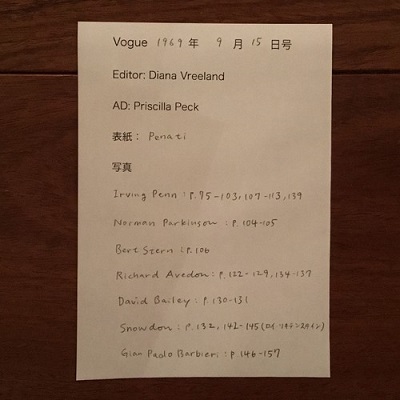 Vogue 1969年 9月 15日号
Editor: Diana Vreeland
AD: Priscilla Peck
表紙: Penati
写真
Irving Penn : P.95-103, 107-113, 139
Norman Parkinson : P.104-105
Bert Stern : P.106
Richard Avedon : P.122-129, 134-137
David Bailey : P.130-131
Snowdon : P.132, 142-145
Gian Paolo Barbieri : P.146-157